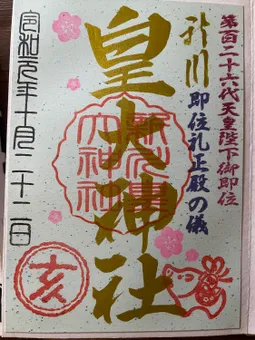 第百二十六代天皇陛下御即位
即位礼正殿の儀
新川
皇大神社
令和元年十月二十二日
亥